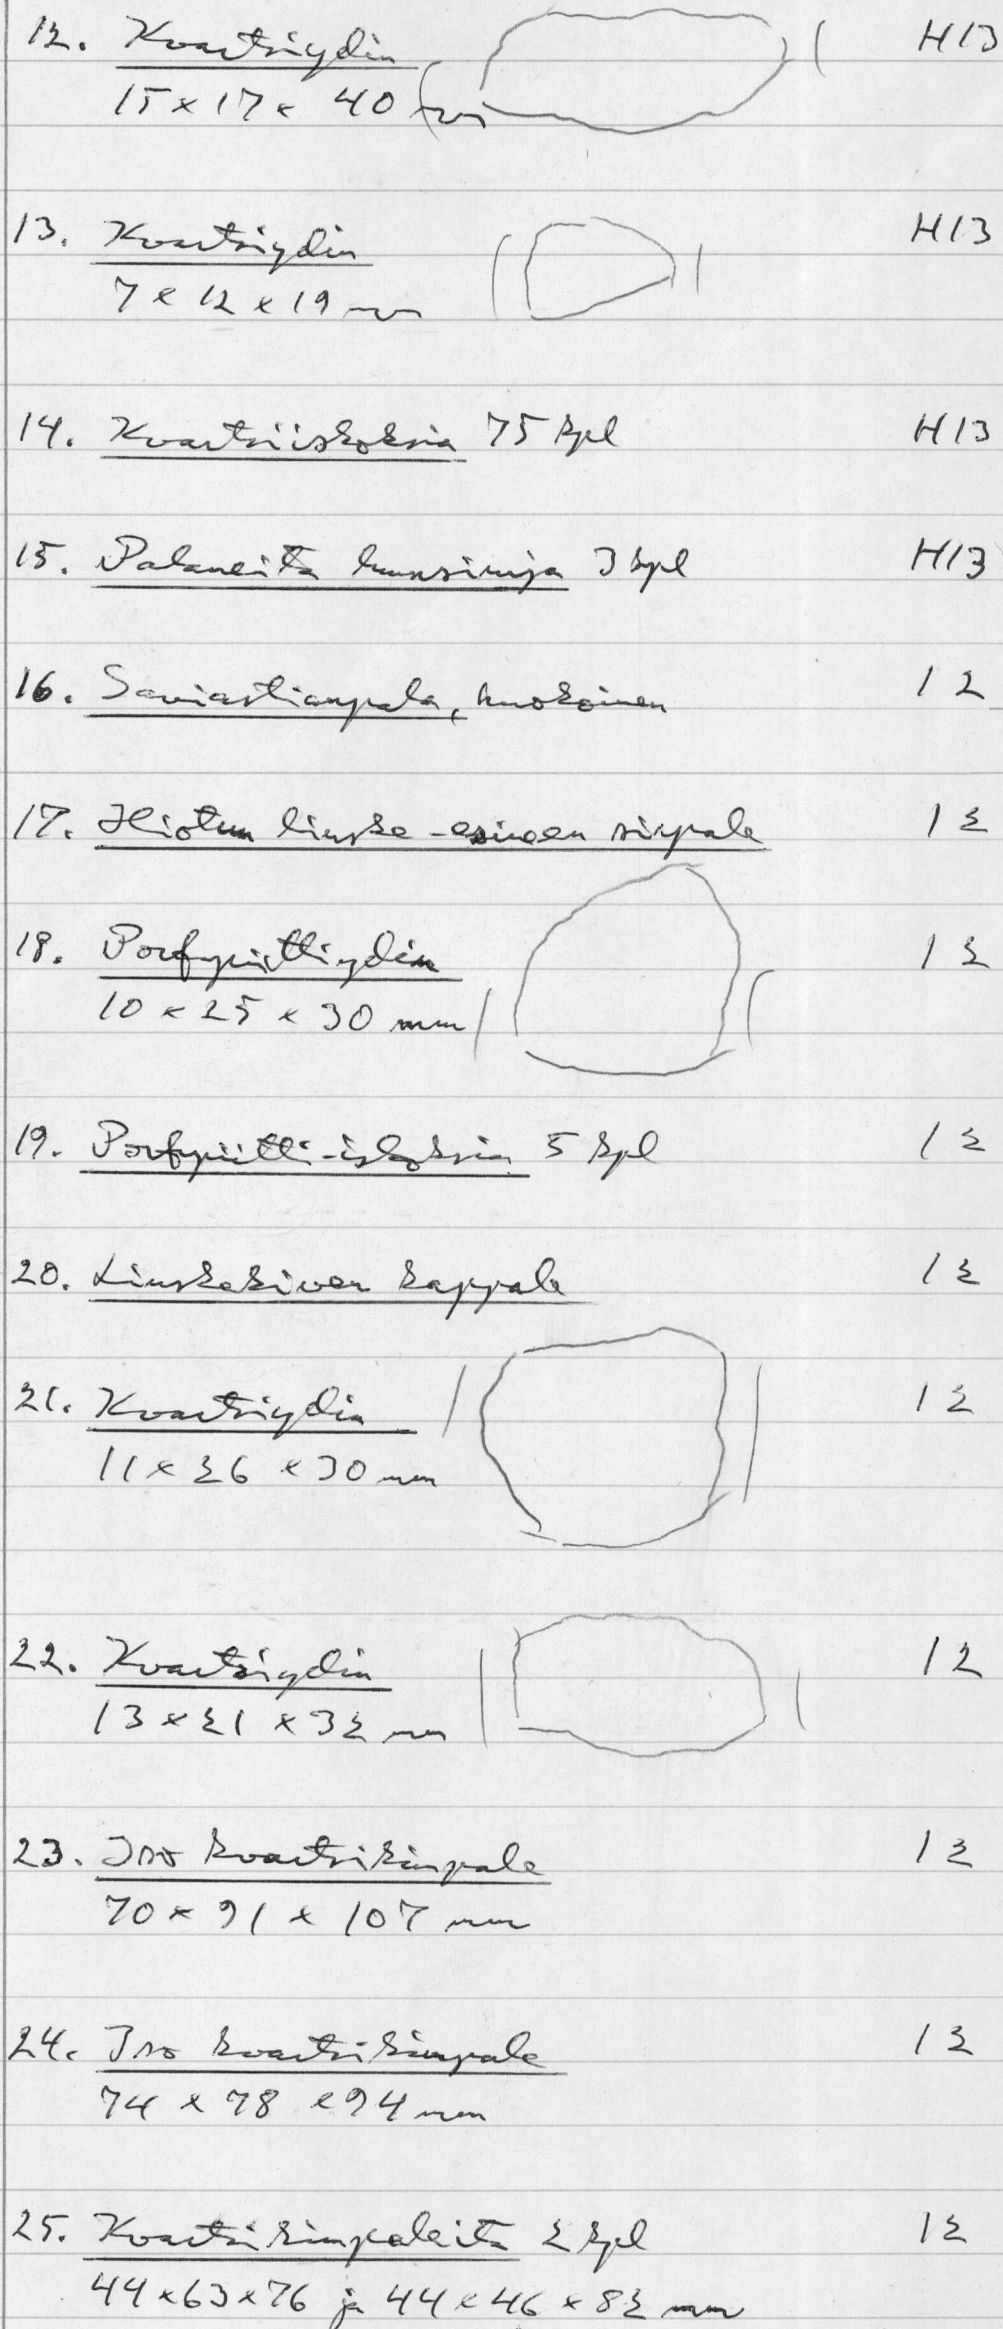 12. Kvartsiydin H13
15 x 17 x 40 mm
13. Kvartsiydin H13
7 x 12 x 19 mm
14. Kvartsi-iskoksia 75 kpl H13
15. Palaneita luunsiruja 3 kpl H13
16. Saviastianpala, huokoinen I2
17. Hiotun liuske-esineen sirpale I2
18. Porfyriittiydin I2
10 x 25 x 30 mm
19. Porfyriitti-iskoksia 5 kpl I2
20. Liuskekiven kappale I2
21. Kvartsiydin I2
11 x 26 x 30 mm
22. Kvartsiydin I2
13 x 21 x 32 mm
23. Iso kvartsikimpale I2
70 x 91 x 107 mm
24. Iso kvartsikimpale I2
74 x 78 x 94 mm
25. Kvartsikimpaleita 2 kpl I2
44 x 63 x 76 ja 44 x 46 x 82 mm